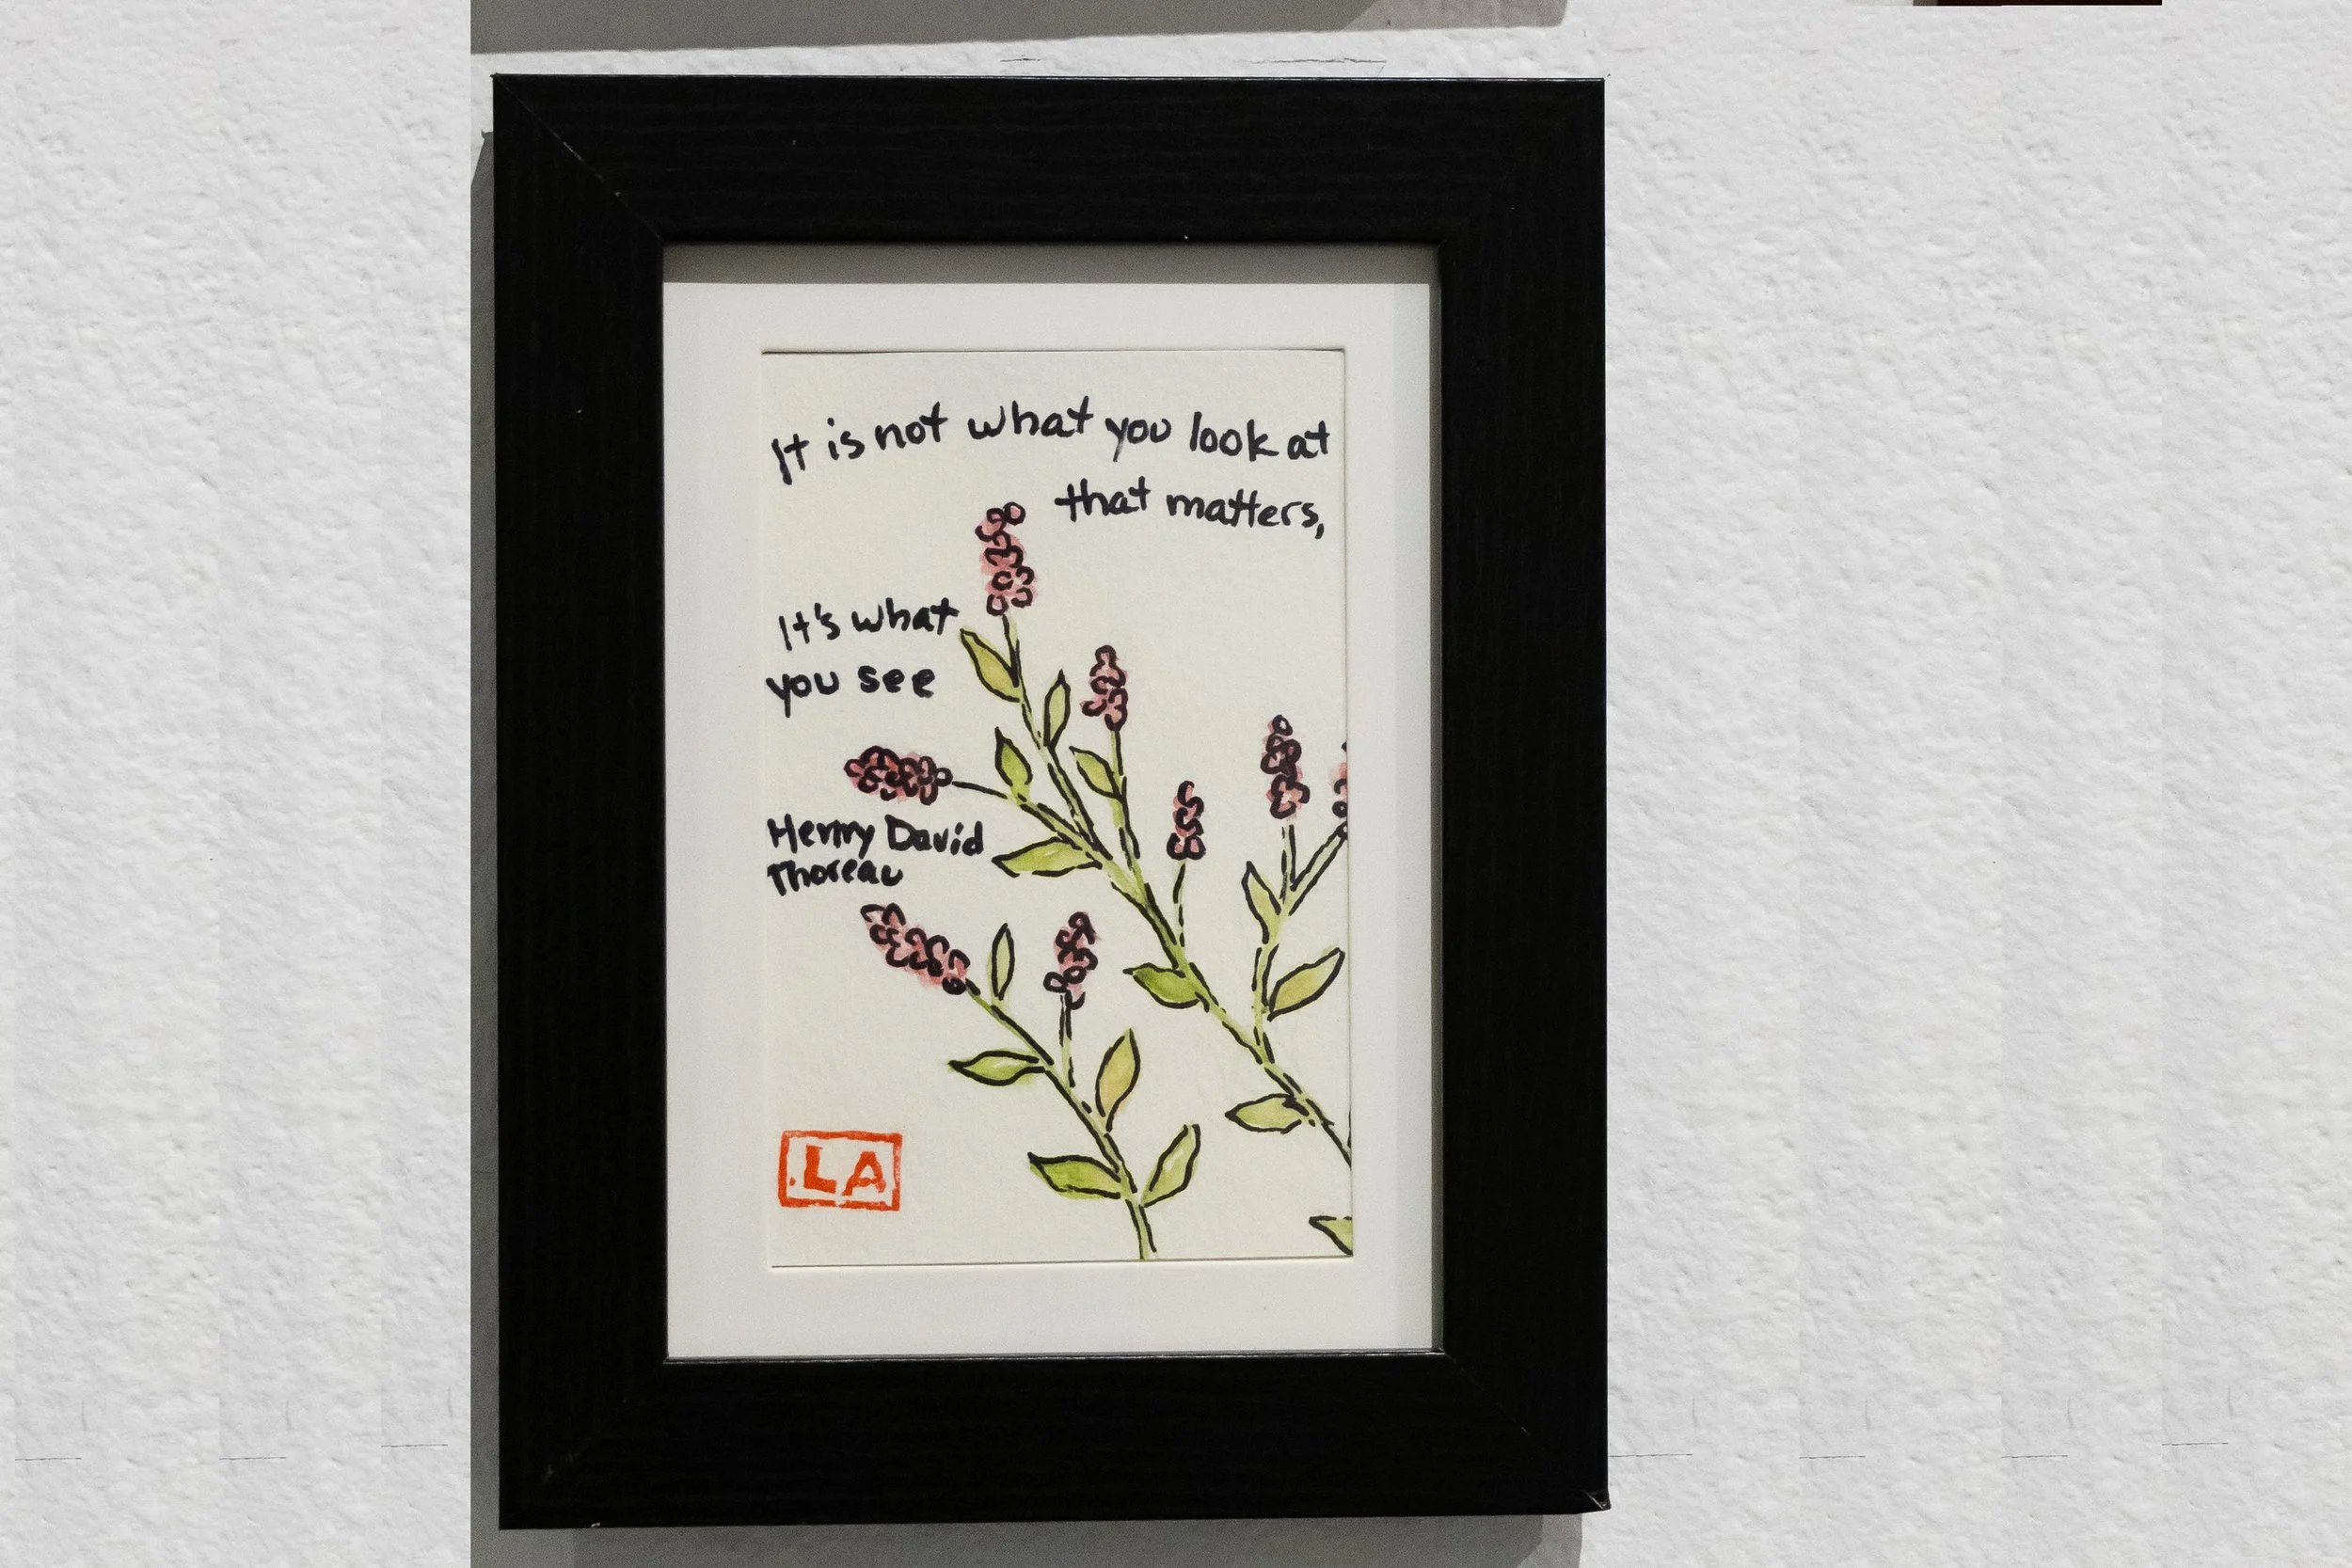 It is not what you look at
that matters,
It's what
you see
Henry David
Thoreau
LA